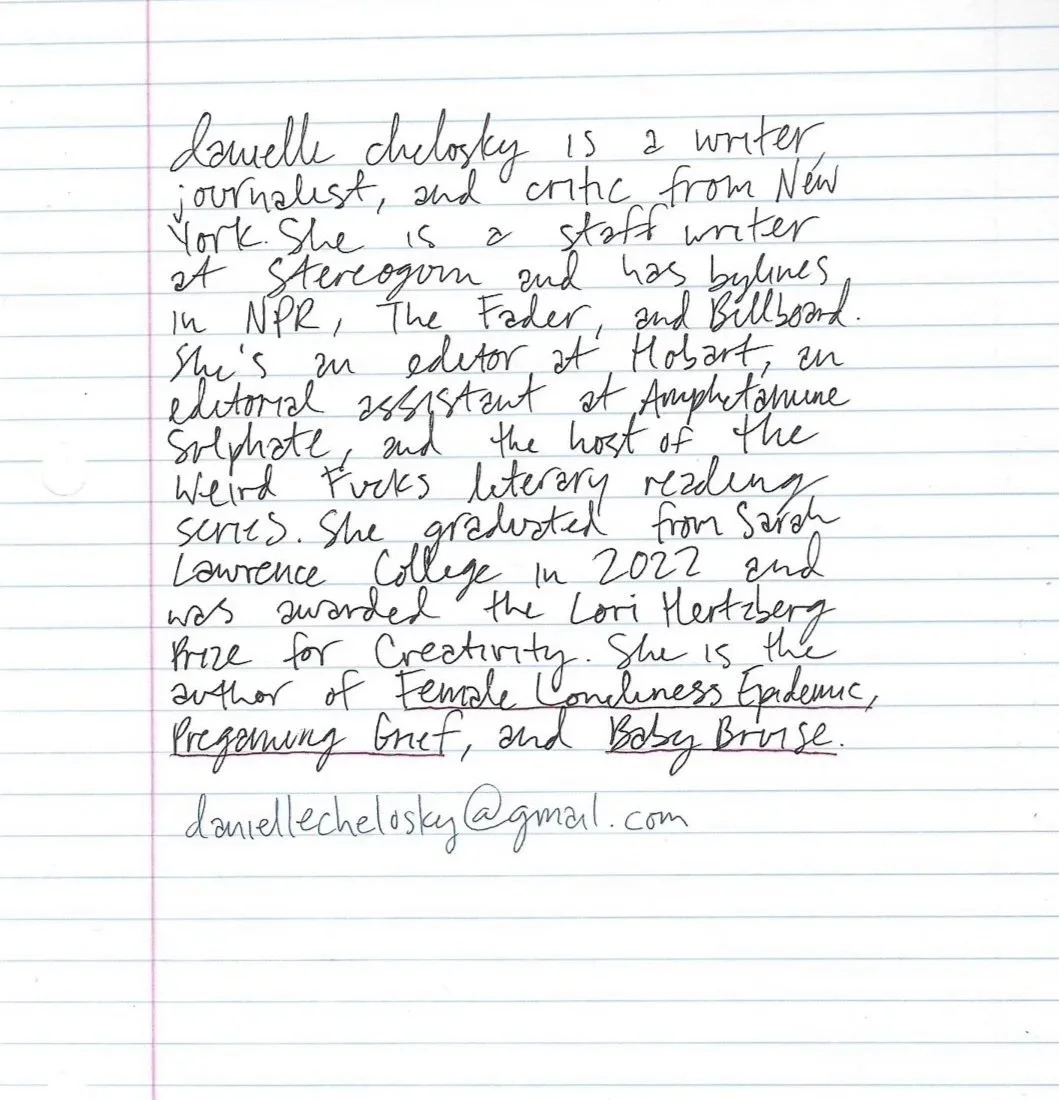 danielle chelosky is a writer,
journalist, and critic from New
York. She is a staff writer
at Stereogum and has bylines
in NPR, The Fader, and Billboard.
She's an editor at Hobart, an
editorial assistant at Amphetamine
Sulphate, and the host of the
Weird Fucks literary reading
series. She graduated from Sarah
Lawrence College in 2022 and
was awarded the Lori Hertzberg
Prize for Creativity. She is the
author of Female Loneliness Epidemic,
Pregaming Grief, and Baby Bruise.
daniellechelosky@gmail.com